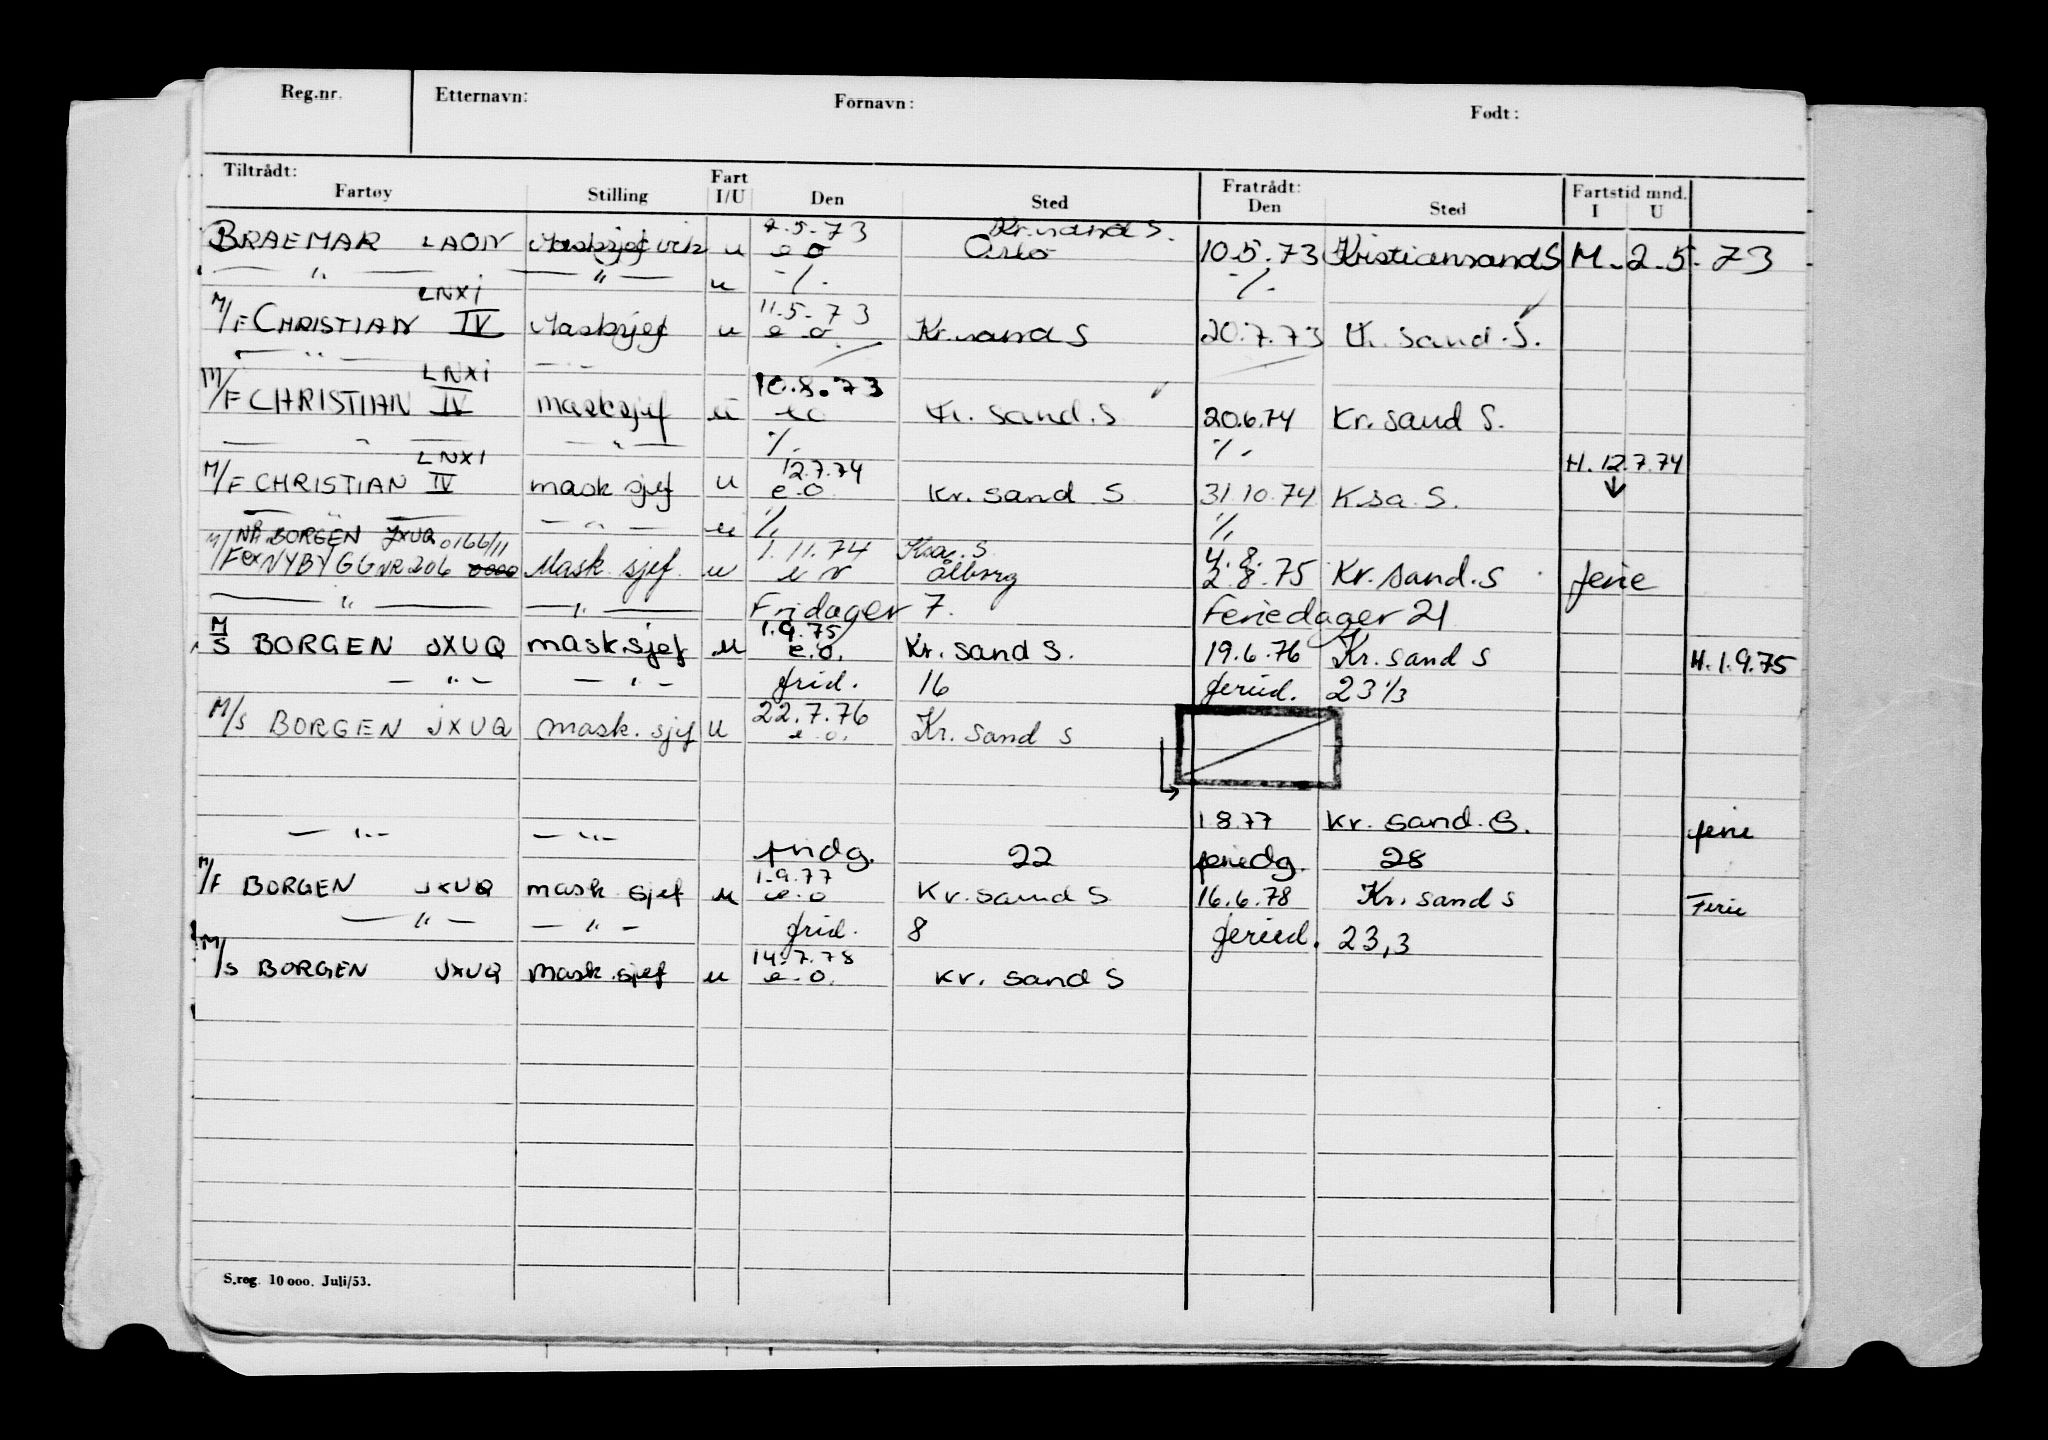 Reg.nr. Etternavn: Fornavn: Født:
Tiltrådt: Fratrådt: Fartstid mnd.
Fartøy Stilling Fart I/U Den Sted Den Sted I U
.5.73 Kr.sand S.
BRAEMAR LAON Masksjef vik u e o Oslo 10.5.73 Kristiansand S M. 2.5.73
— " — — " — u -/- -/-
LNXI 11.5-73
M/F CHRISTIAN IV Masksjef u e o Kr.sand S 20.7.73 Kr. sand. S.
— " —
LNXI 10.8.73
M/F CHRISTIAN IV masksjef u eo Kr. sand. S 20.6.74 Kr. sand S.
— " — — " — -/. -/.
LNXI 12.7.74 H. 12.7.74
M/F CHRISTIAN IV mask sjef u e.o. Kr. sand S 31.10.74 K.sa. S. ↓
— " — — " — u -/. -/.
NB. BORGEN JXUQ 0166/11 1.11.74 Ksa. S 4. 8.
M/F ex NYBYGG NR 206 0000 Mask. sjef. u Ålborg 2.8.75 Kr. sand. S ferie
— " — — " — Fridager 7. Feriedager 21
1.9.75
M/S BORGEN JXUQ mask.sjef u e.o. Kr. sand S. 19.6.76 Kr. sand S H. 1.9.75
— " — — " — frid. 16 feried. 23 1/3
22.7.76
M/S BORGEN JXUQ mask. sjef U e.o. Kr. sand S
1.8.77 Kr. sand. S. ferie
— " — — " — fridg. 22 feriedg. 28
1.9.77
M/F BORGEN JXUQ mask sjef u e.o Kr. sand S 16.6.78 Kr. sand S Ferie
— " — — " — frid. 8 feried. 23,3
14.7.78
M/S BORGEN JXUQ mask. sjef u e.o. Kr. sand S
S.reg. 10 000. Juli/53.